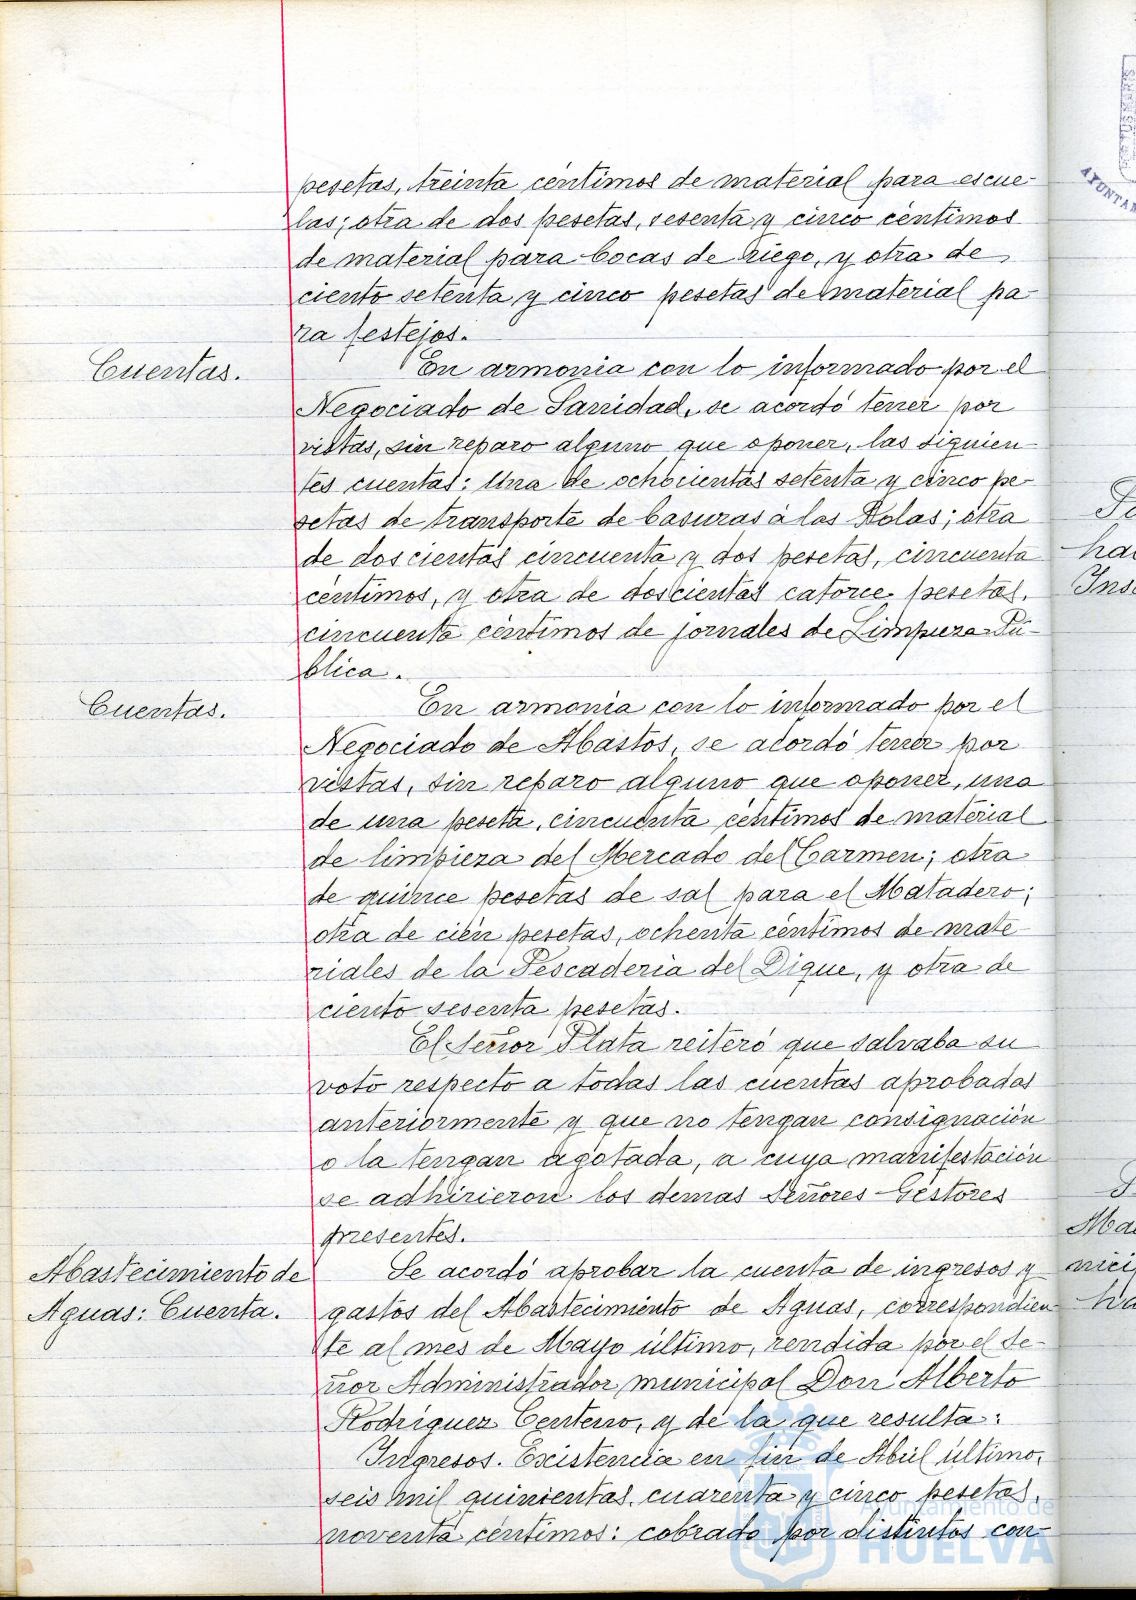 pesetas, treinta céntimos de material para escue-
las; otra de dos pesetas, sesenta y cinco céntimos
de material para bocas de riego, y otra de
ciento setenta y cinco pesetas de material pa-
ra festejos.
Cuentas.
En armonia con lo informado por el
Negociado de Sanidad, se acordó tener por
vistas, sin reparo alguno que oponer, las siguien-
tes cuentas: Una de ochocientas setenta y cinco pe-
setas de transporte de basuras á las Holas; otra
de doscientas cincuenta y dos pesetas, cincuenta
céntimos, y otra de doscientas catorce pesetas,
cincuenta céntimos de jornales de Limpieza Pú-
blica.
Cuentas.
En armonia con lo informado por el
Negociado de Abastos, se acordó tener por
vistas, sin reparo alguno que oponer, una
de una peseta, cincuenta céntimos de material
de limpieza del Mercado del Carmen; otra
de quince pesetas de sal para el Matadero;
otra de cien pesetas, ochenta céntimos de mate-
riales de la Pescaderia del Dique, y otra de
ciento sesenta pesetas.
El Señor Plata reiteró que salvaba su
voto respecto a todas las cuentas aprobadas
anteriormente y que no tengan consignación
o la tengan agotada, a cuya manifestación
se adhirieron los demas Señores Gestores
presentes.
Abastecimiento de
Aguas: Cuenta.
Se acordó aprobar la cuenta de ingresos y
gastos del Abastecimiento de Aguas, correspondien-
te al mes de Mayo último, rendida por el Se-
ñor Administrador municipal Don Alberto
Rodríguez Centeno, y de la que resulta:
Ingresos. Existencia en fin de Abril último,
seis mil quinientas cuarenta y cinco pesetas,
noventa céntimos: cobrado por distintos con-
Ayuntamiento de
HUELVA